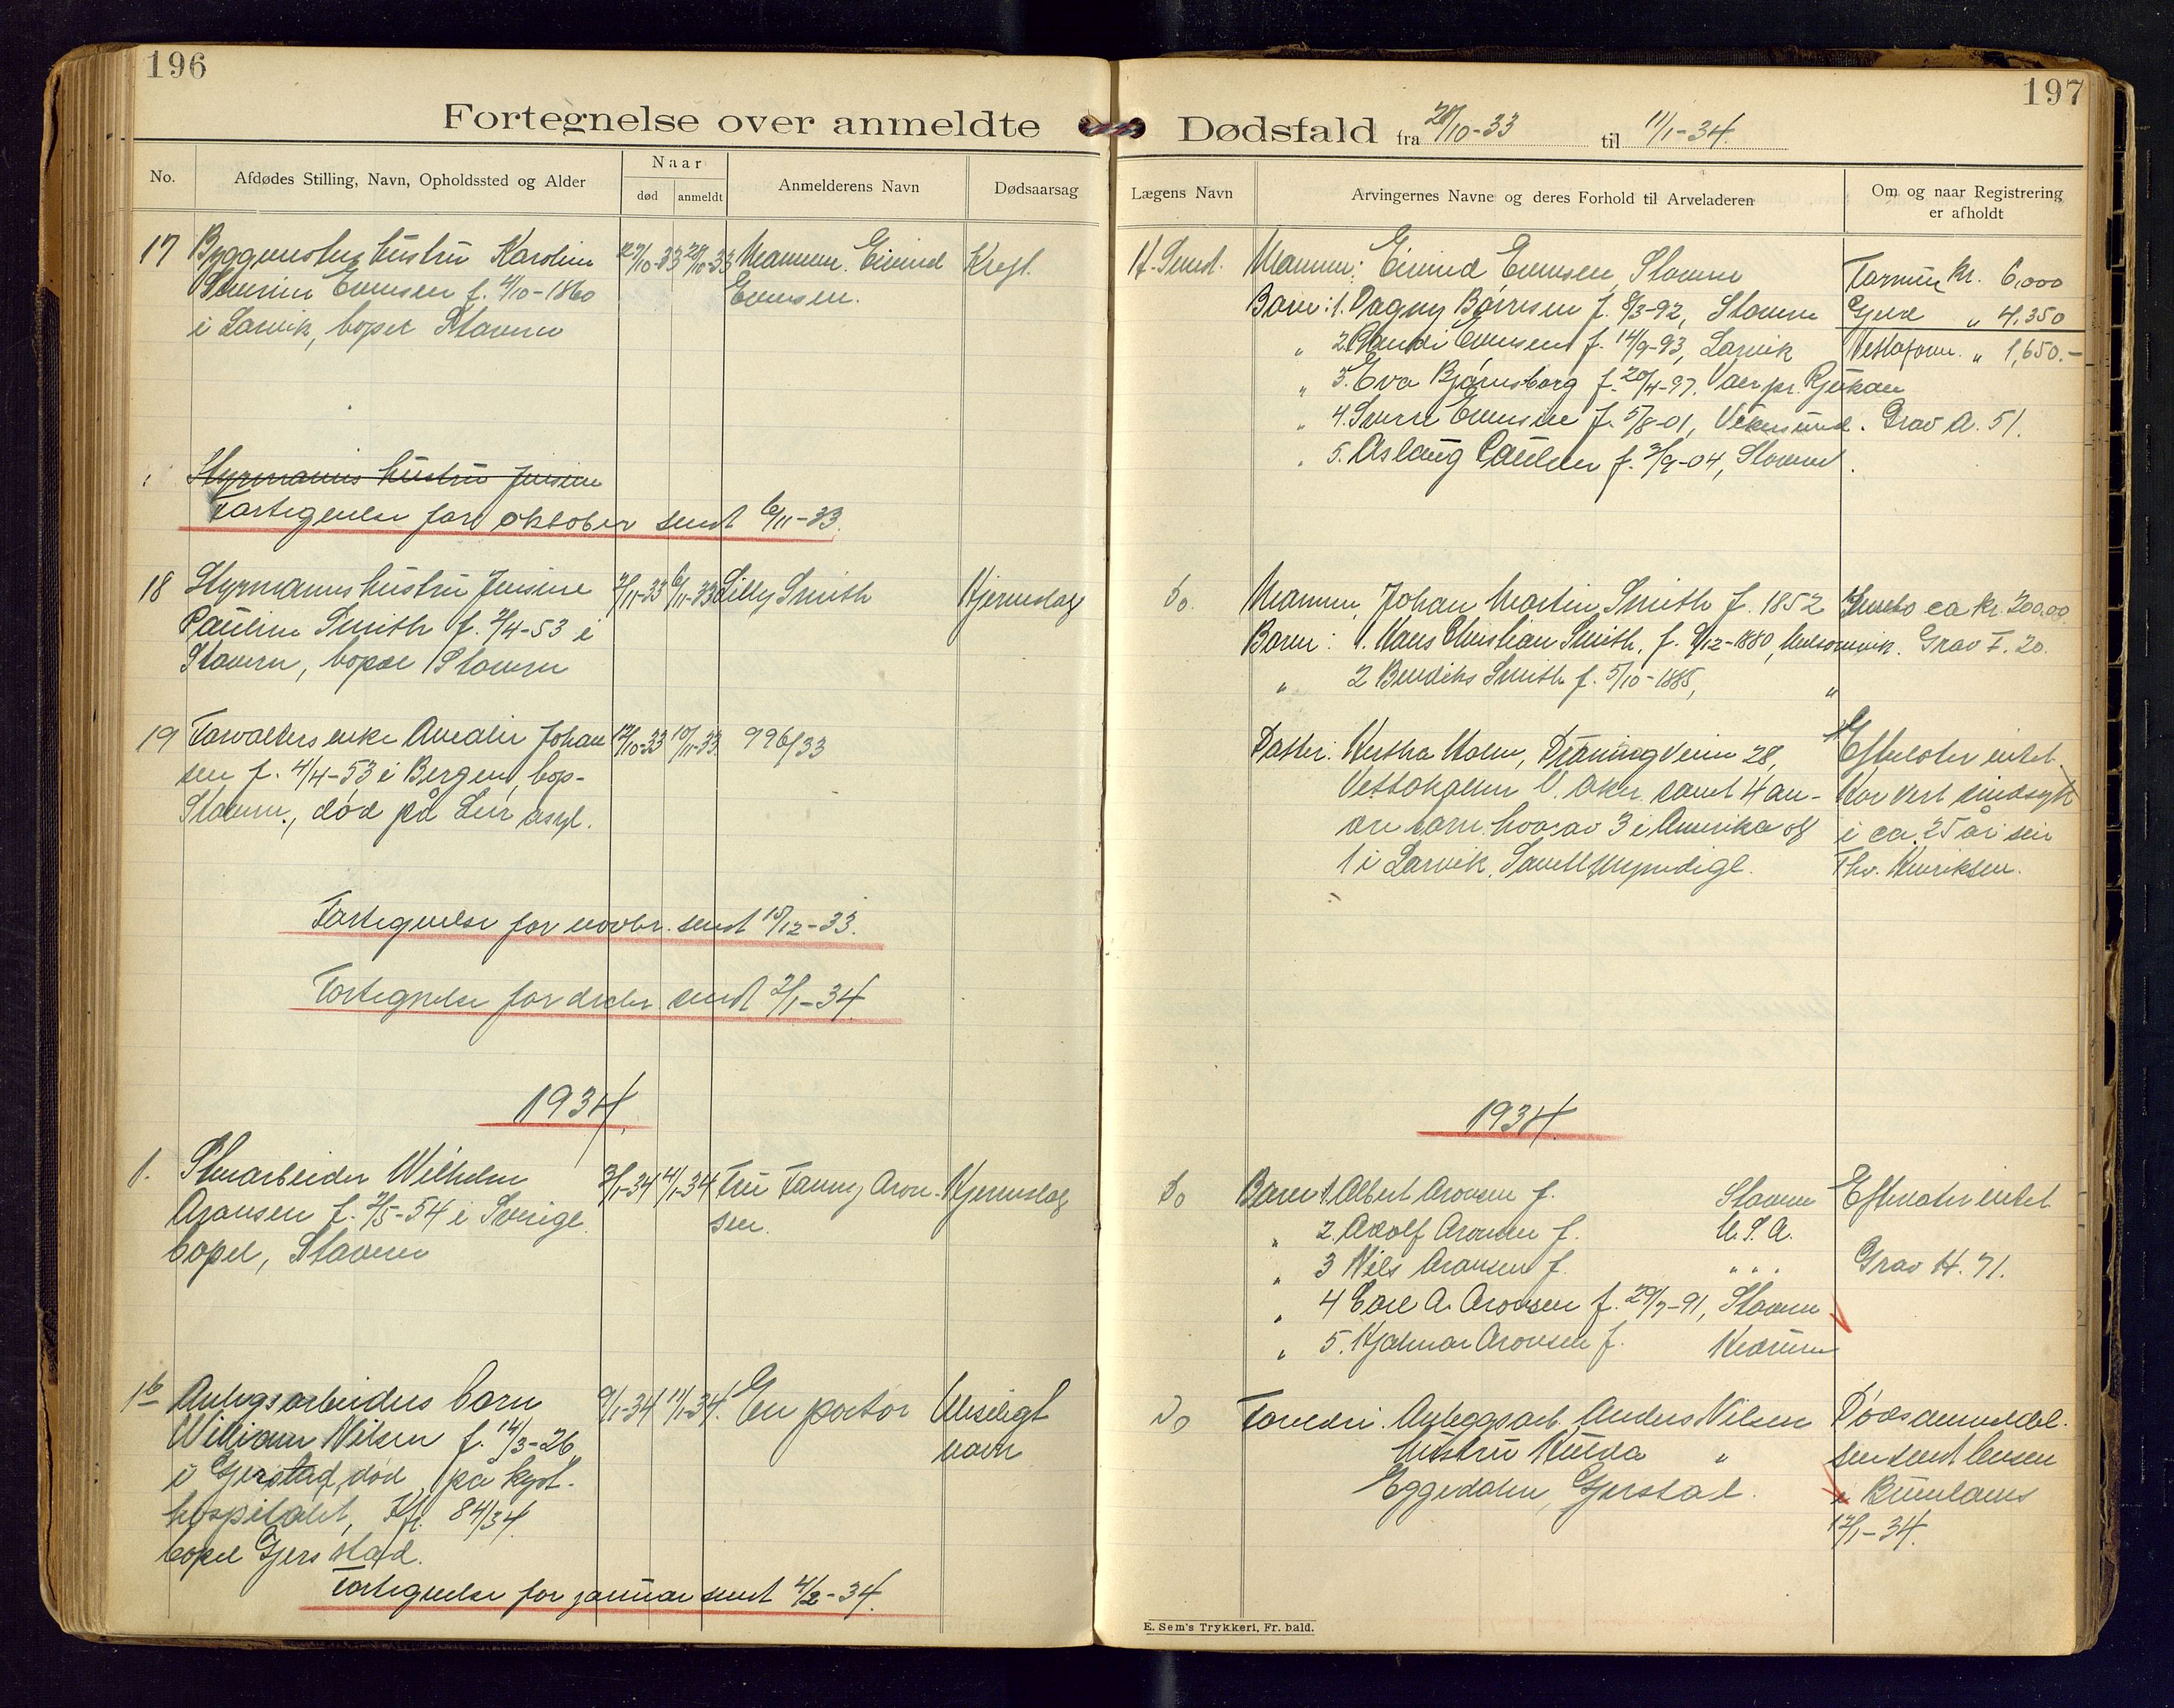 196
Fortegnelse over anmeldte
No.
Afdødes Stilling, Navn, Opholdssted og Alder
Naar
død
anmeldt
Anmelderens Navn
Dødsaarsag
17 Byggmesters hustru Karoline 27/10-33 28/10-33 Mannen. Eivind Kreft.
Severine Evensen f. 4/10-1860 Evensen.
i Larvik, bopæl Stavern
Styrmanns hustru Jensine
Fortegnelse for oktober sendt 6/11-33.
18 Styrmanns hustru Jensine 3/11-33 6/11-33 Lilly Smith Hjerneslag
Pauline Smith f. 2/4-53 i
Stavern, bopæl Stavern
19 Forvalters enke Amalie Johan 12/10-33 10/11-33 996/33
sen f. 4/4-53 i Bergen, bop-
Stavern., død på Lier asyl.
Fortegnelse for novbr. sendt 15/12-33.
Fortegnelse for decbr. sendt 2/1-34.
1934.
1. Stenarbeider Wilhelm 3/1-34 4/1-34 Fru Fanny Aron- Hjerneslag
Aronsen f. 2/5-54 i Sverige. sen.
bopæl, Stavern
1b Anlegsarbeiders barn 9/1-34 11/1-34. En portør Uleseligt
William Nilsen f. 14/3-26 navn
i Gjerstad, død på kyst.
hospitalet, Kfr. 84/34.
bopæl Gjerstad.
Fortegnelse for januar sendt 4/2-34.
197
Dødsfald fra 28/10-33 til 11/1-34.
Lægens Navn
Arvingernes Navne og deres Forhold til Arveladeren
Om og naar Registrering
er afholdt
Mannen: Eivind Evensen, Stavern Formue kr. 6,000
Barn: 1. Dagny Børresen f. 8/3-92, Stavern Gjeld " 4,350
" 2. Evensen f. 14/9-93, Larvik Nettoform. " 1,650.-
" 3. Eva Bjørnsborg f. 20/4-97. Vaer pr. Rjukan
" 4. Sverre Evensen f. 5/8-01, Vikersund. Grav A. 51.
" 5. Aslaug Paulsen f. 3/9-04, Stavern.
Do. Mannen, Johan Martin Smith f. 1852 ca kr. 20000
Barn: 1. Hans Christian Smith, f. 9/12-1880, Melsomvik. Grav F. 20.
" 2 Bendiks Smith f. 5/10-1885, "
Datter. Hertha Holm, Dronning Veien 28, Efterlater intet.
V. Aker samt 4 an- Har vert sindsyk
dre barn hvorav 3 i Amerika og i ca. 25 år sier
1 i Larvik. Samtl. myndige. Thv. Henriksen.
1934.
Do Barn 1. Albert Aronsen f. Stavern Efterlater intet
" 2. Adolf Aronsen f. U.S.A.
" 3 Nils Aronsen f. " " " Grav H. 71.
" 4 Carl A. Aronsen f. 29/7-91, Stavern
" 5. Hjalmar Aronsen f. Hedrum
Do Foreldre. Anleggsarb. Anders Nilsen Dødsanmeldel.
hustru Hulda " sen sendt lensm
Eggedalen, Gjerstad. i Brunlanes
12/1-34.
E. Sem's Trykkeri, Fr. hald.